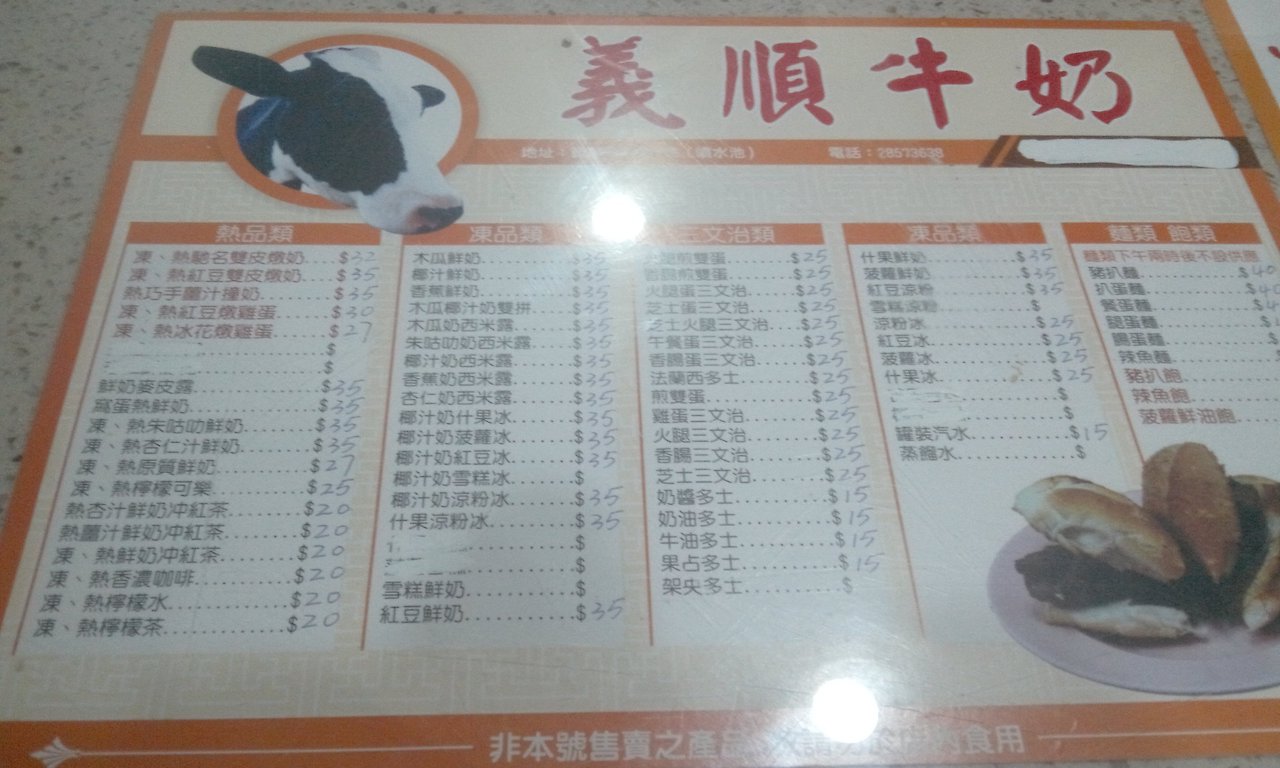 義順牛奶
地址： （噴水池） 電話：28573638
熱品類
凍、熱馳名雙皮燉奶 $32
凍、熱紅豆雙皮燉奶 $35
熱巧手薑汁撞奶........$35
凍、熱紅豆燉雞蛋......$30
凍、熱冰花燉雞蛋......$27
$
$
鮮奶麥皮露............$35
窩蛋熱鮮奶............$35
凍、熱朱咕叻鮮奶......$35
凍、熱杏仁汁鮮奶......$35
凍、熱原質鮮奶........$27
凍、熱檸檬可樂........$25
熱杏汁鮮奶冲紅茶......$20
熱薑汁鮮奶冲紅茶......$20
凍、熱鮮奶冲紅茶......$20
凍、熱香濃咖啡........$20
凍、熱檸檬水..........$20
凍、熱檸檬茶..........$20
凍品類
木瓜鮮奶..........$35
椰汁鮮奶..........$35
香蕉鮮奶..........$35
木瓜椰汁奶雙拼....$35
木瓜奶西米露......$35
朱咕叻奶西米露....$35
椰汁奶西米露......$35
香蕉奶西米露......$35
杏仁奶西米露......$35
椰汁奶什果冰......$35
椰汁奶菠蘿冰......$35
椰汁奶紅豆冰......$35
椰汁奶雪糕冰......$
椰汁奶涼粉冰......$35
什果涼粉冰........$35
$
$
雪糕鮮奶..........$
紅豆鮮奶..........$35
三文治類
煎雙蛋......$25
煎雙蛋......$25
火腿蛋三文治......$25
芝士蛋三文治......$25
芝士火腿三文治....$25
午餐蛋三文治......$25
香腸蛋三文治......$25
法蘭西多士........$25
煎雙蛋............$25
雞蛋三文治........$25
火腿三文治........$25
香腸三文治........$25
芝士三文治........$25
奶醬多士..........$15
奶油多士..........$15
牛油多士..........$15
果占多士..........$15
架央多士..........$
凍品類
什果鮮奶..........$35
菠蘿鮮奶..........$35
紅豆涼粉..........$35
雪糕涼粉..........$
涼粉冰............$25
紅豆冰............$25
菠蘿冰............$25
什果冰............$25
$
$
罐裝汽水..........$15
蒸餾水............$
麵類 飽類
麵類下午兩時後不設供應
豬扒麵..........$40
扒蛋麵..........$
餐蛋麵..........$
腿蛋麵..........$
腸蛋麵..........
辣魚麵..........
豬扒飽..........
辣魚飽..........
菠蘿鮮油飽......
非本號售賣之產品 食用